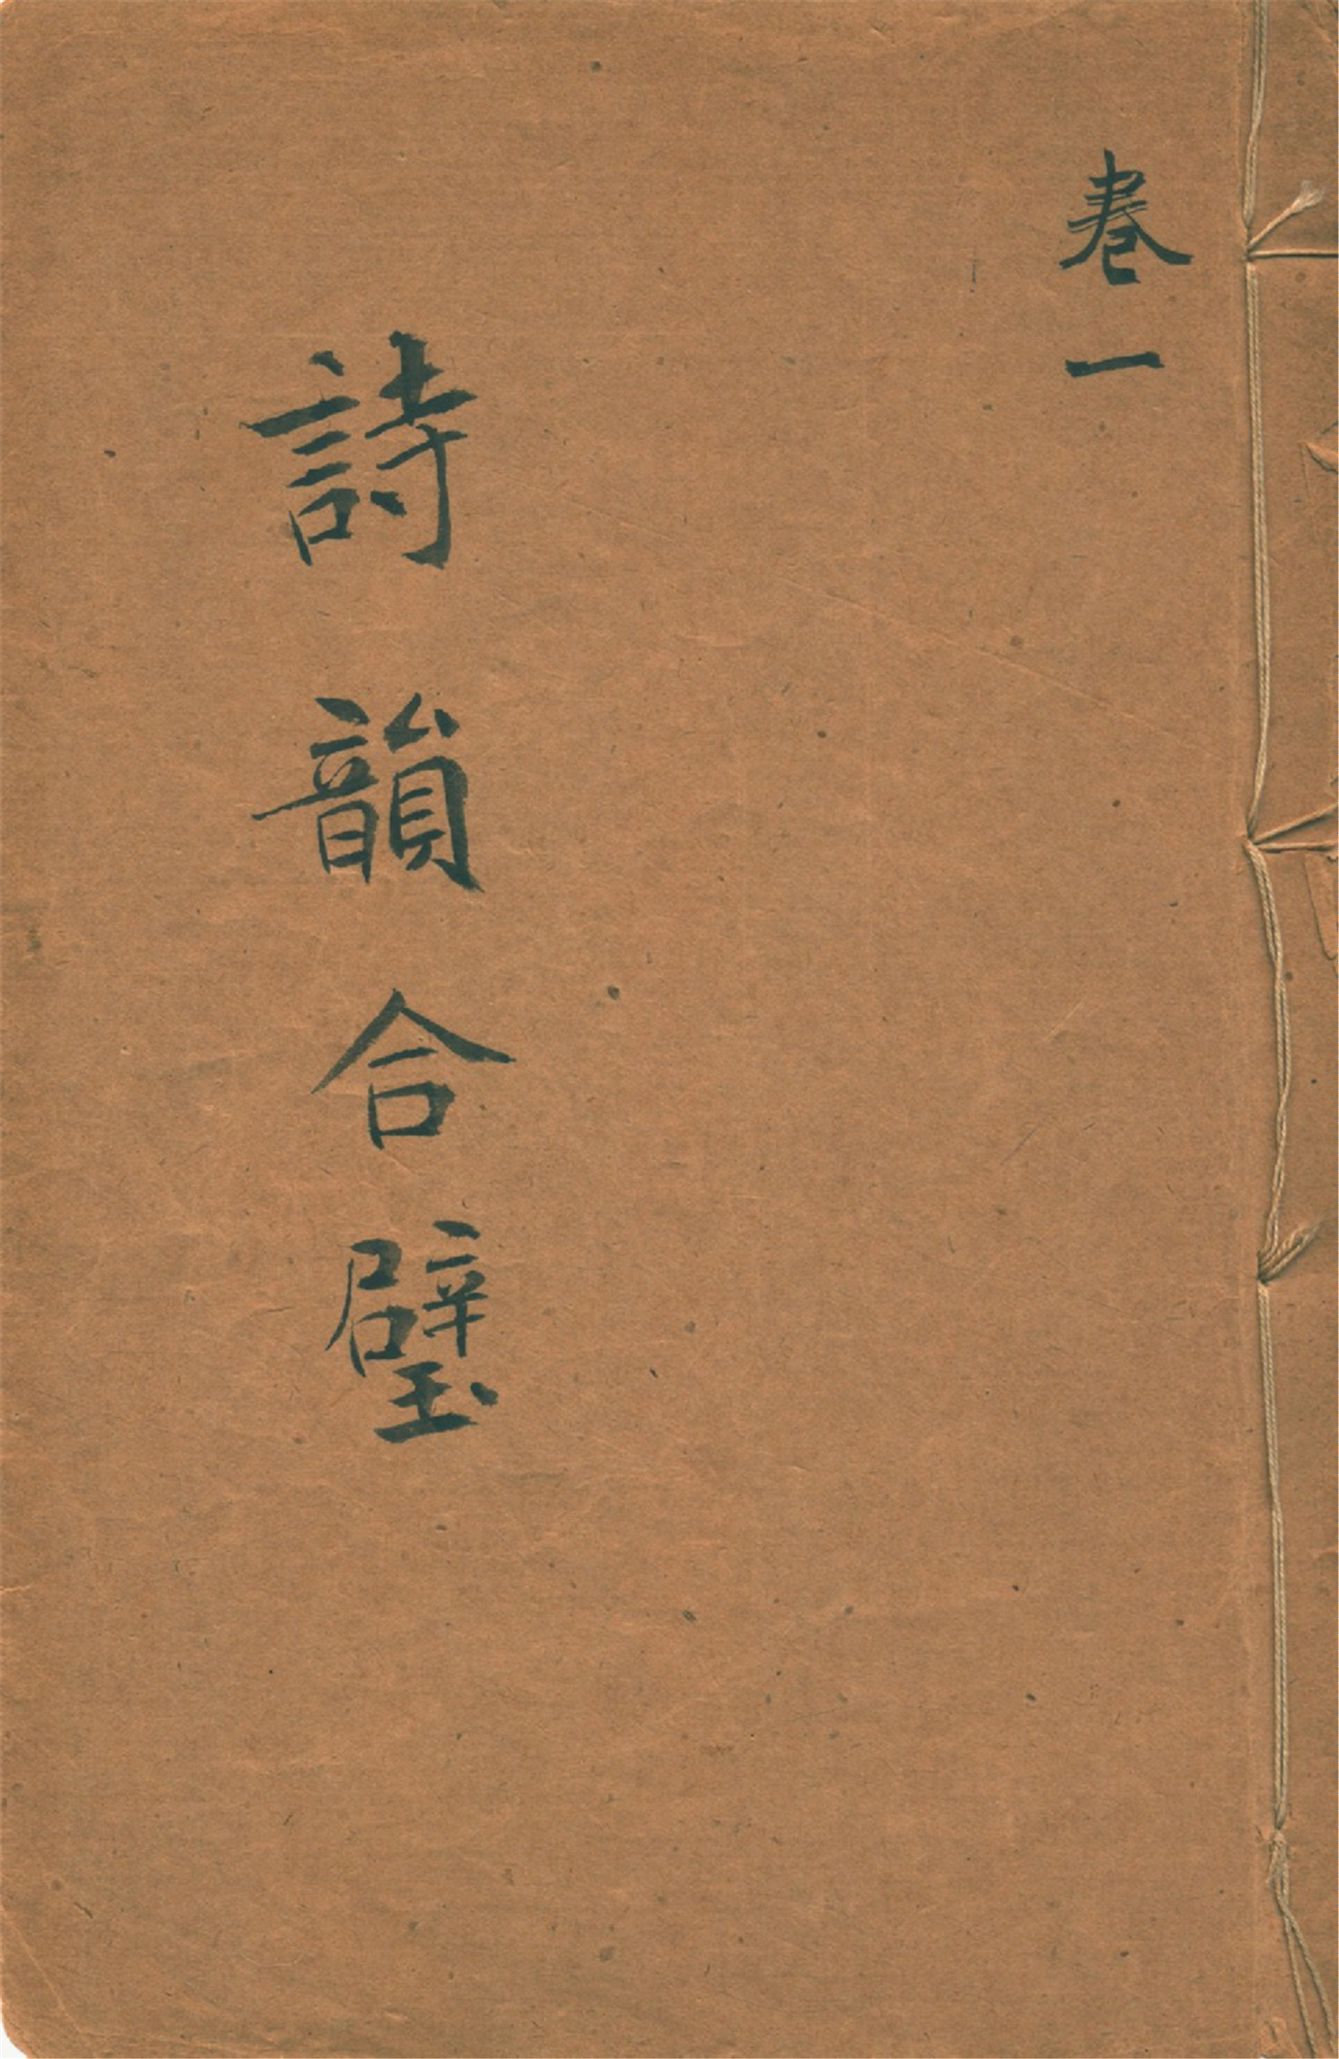 卷一
詩韻合璧